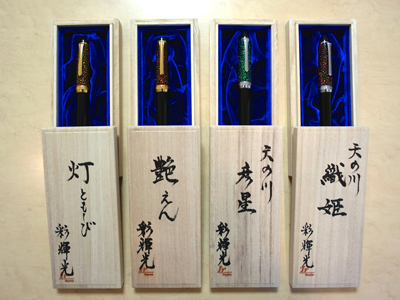 灯
ともしび
彩輝光
艶
えん
彩輝光
天の川
彦星
彩輝光
天の川
織姫
彩輝光